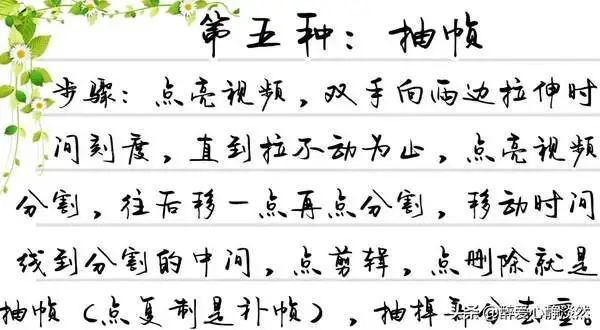 第五种：抽帧
步骤：点亮视频，双手向两边拉伸时
间刻度，直到拉不动为止，点亮视频
分割，往后移一点再点分割，移动时间
线到分割的中间，点剪辑，点删除就是
抽帧（点复制是补帧），抽掉
头条@醉爱心静淡然